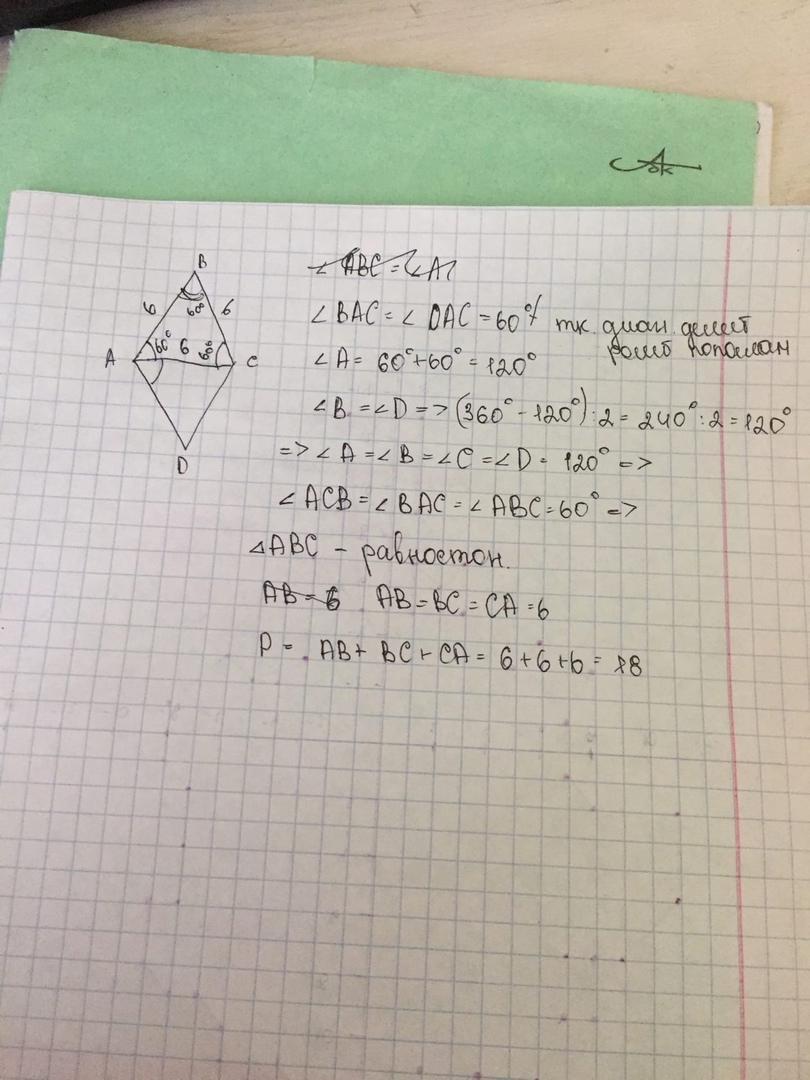 Аок
B
6
60°
6
A
60°
6
60°
C
D
∠ ABC = ∠A
∠ BAC = ∠ DAC = 60° т.к. диаг. делит
ромб пополам
∠ A = 60° + 60° = 120°
∠ B = ∠ D => (360° - 120°) : 2 = 240° : 2 = 120°
=> ∠ A = ∠ B = ∠ C = ∠ D = 120° =>
∠ ACB = ∠ BAC = ∠ ABC = 60° =>
△ABC - равностон.
AB = 6 AB = BC = CA = 6
P = AB + BC + CA = 6 + 6 + 6 = 18